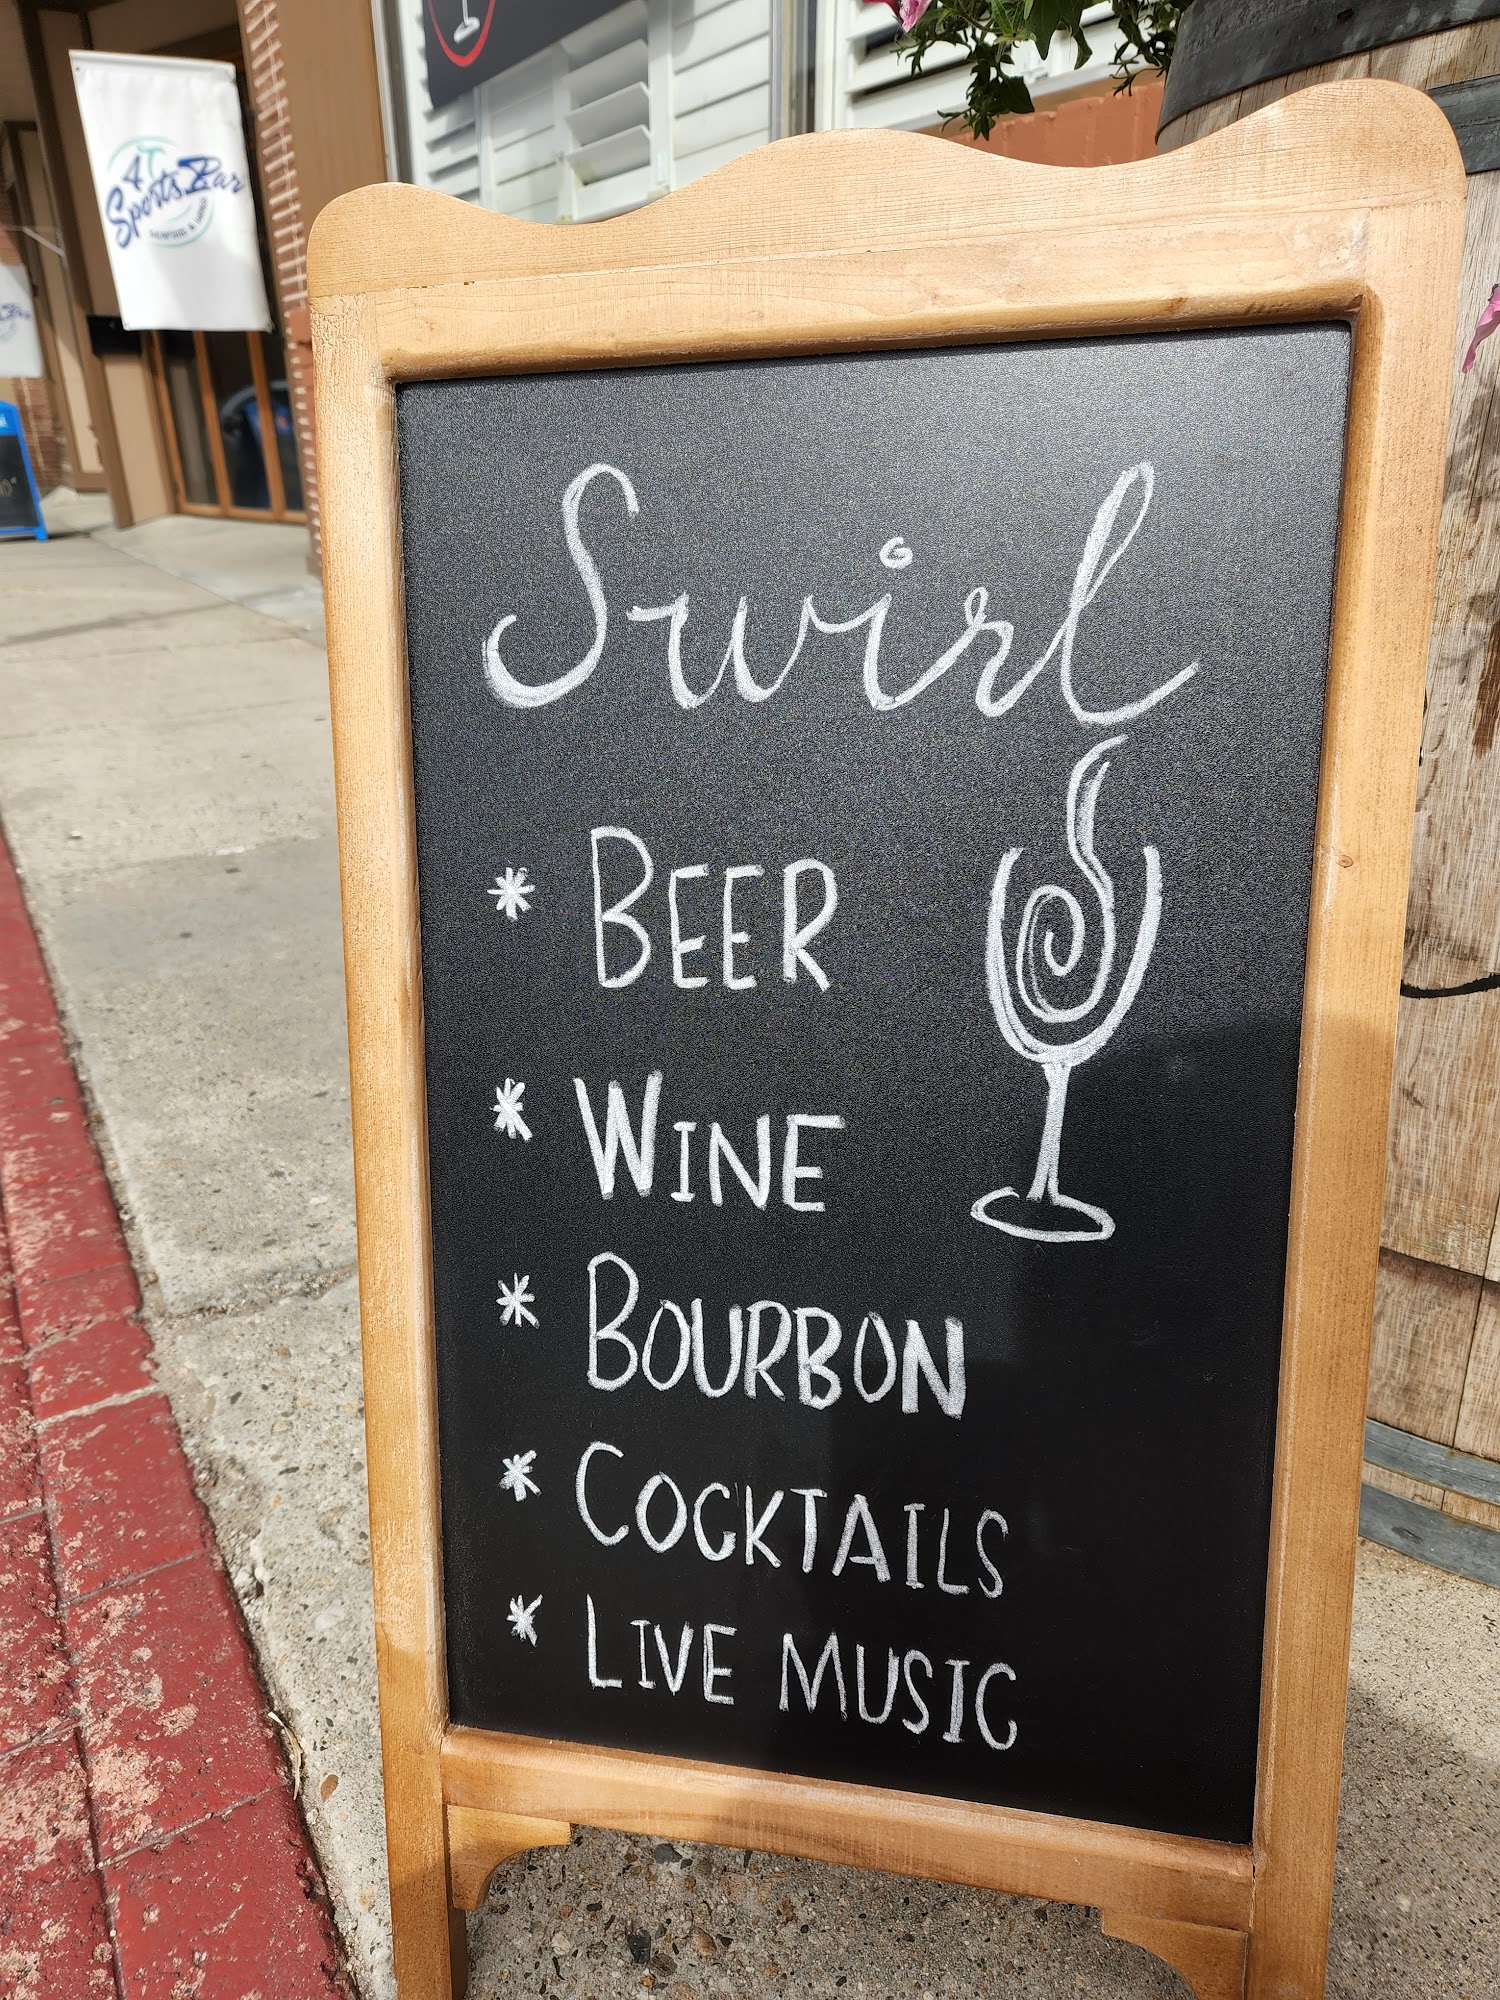 4T
Sports Bar
Swirl
* BEER
* WINE
* BOURBON
* COCKTAILS
* LIVE MUSIC